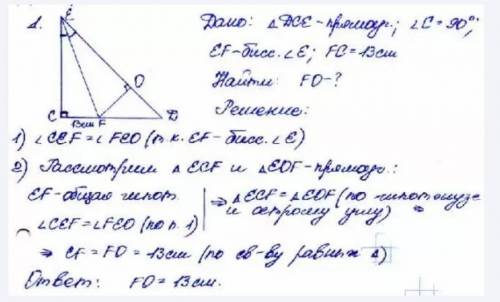 1.
E
C
13см F
O
D
Дано: △DCE-прямоуг.; ∠C=90°;
EF-бисс. ∠E; FC=13см
Найти: FO-?
Решение:
1) ∠CEF=∠FEO (т.к. EF-бисс. ∠E)
2) Рассмотрим △ECF и △EOF-прямоуг.:
EF-общая гипот.
∠CEF=∠FEO (по п.1)
⇒ △ECF=△EOF (по гипотенузе
и острому углу) ⇒
⇒ CF=FO=13см (по св-ву равных △)
Ответ: FO=13см.